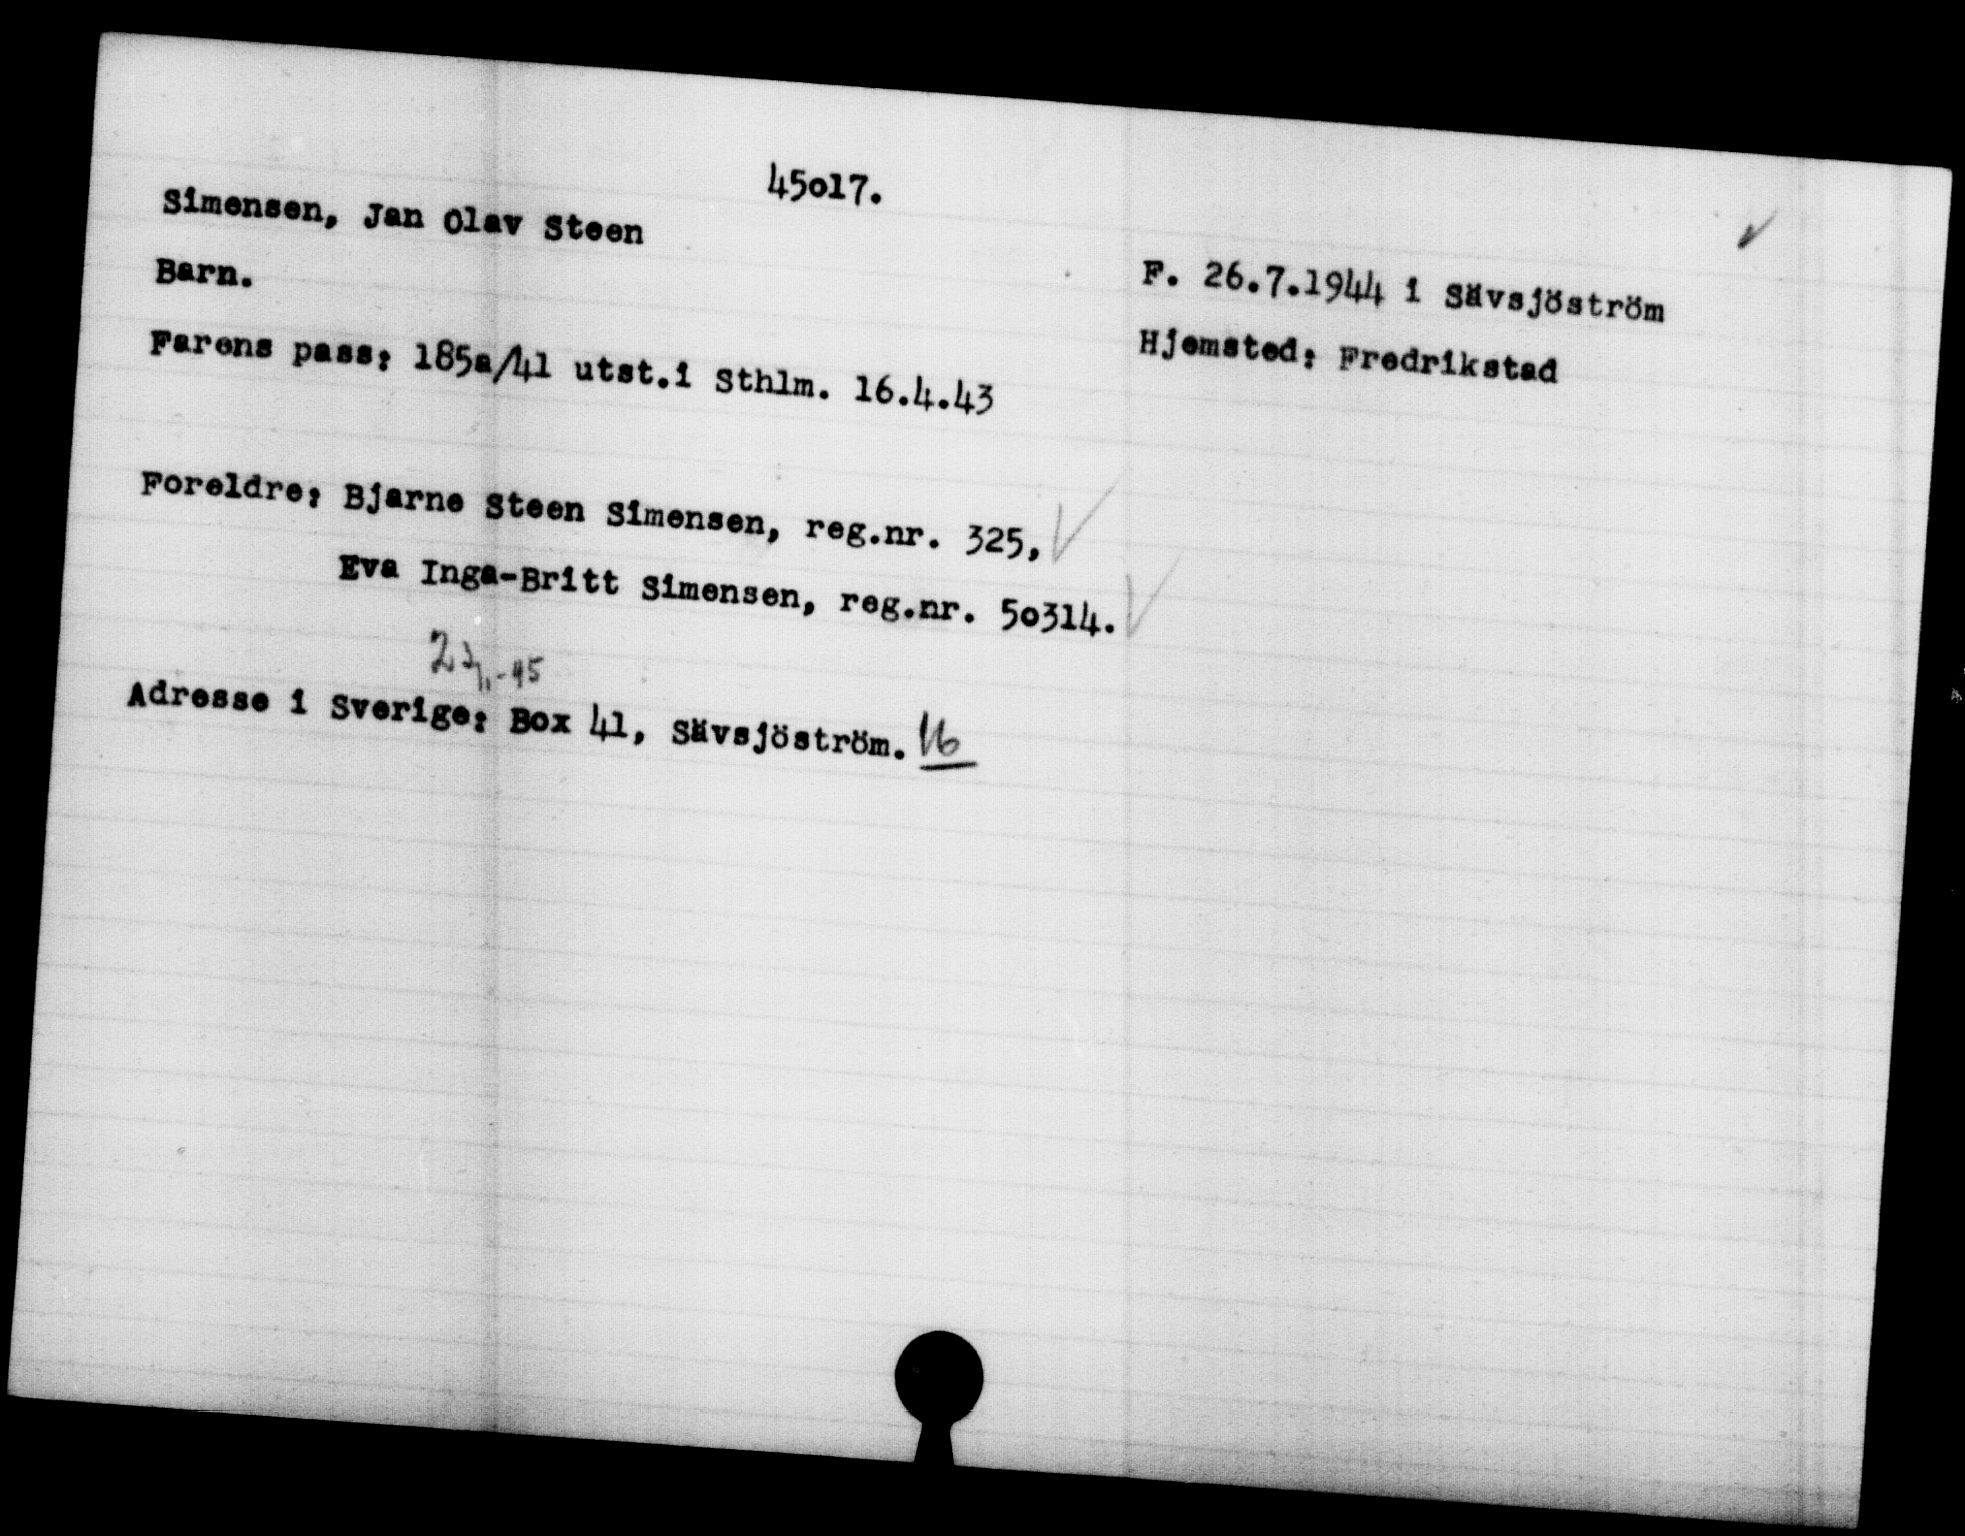 45017.
Simensen, Jan Olav Steen
Barn.
F. 26.7.1944 i Sävsjöström
Farens pass: 185a/41 utst.i Sthlm. 16.4.43
Hjemsted: Fredrikstad
Foreldre: Bjarne Steen Simensen, reg.nr. 325,
Eva Inga-Britt Simensen, reg.nr. 50314.
Adresse i Sverige: Box 41, Sävsjöström.